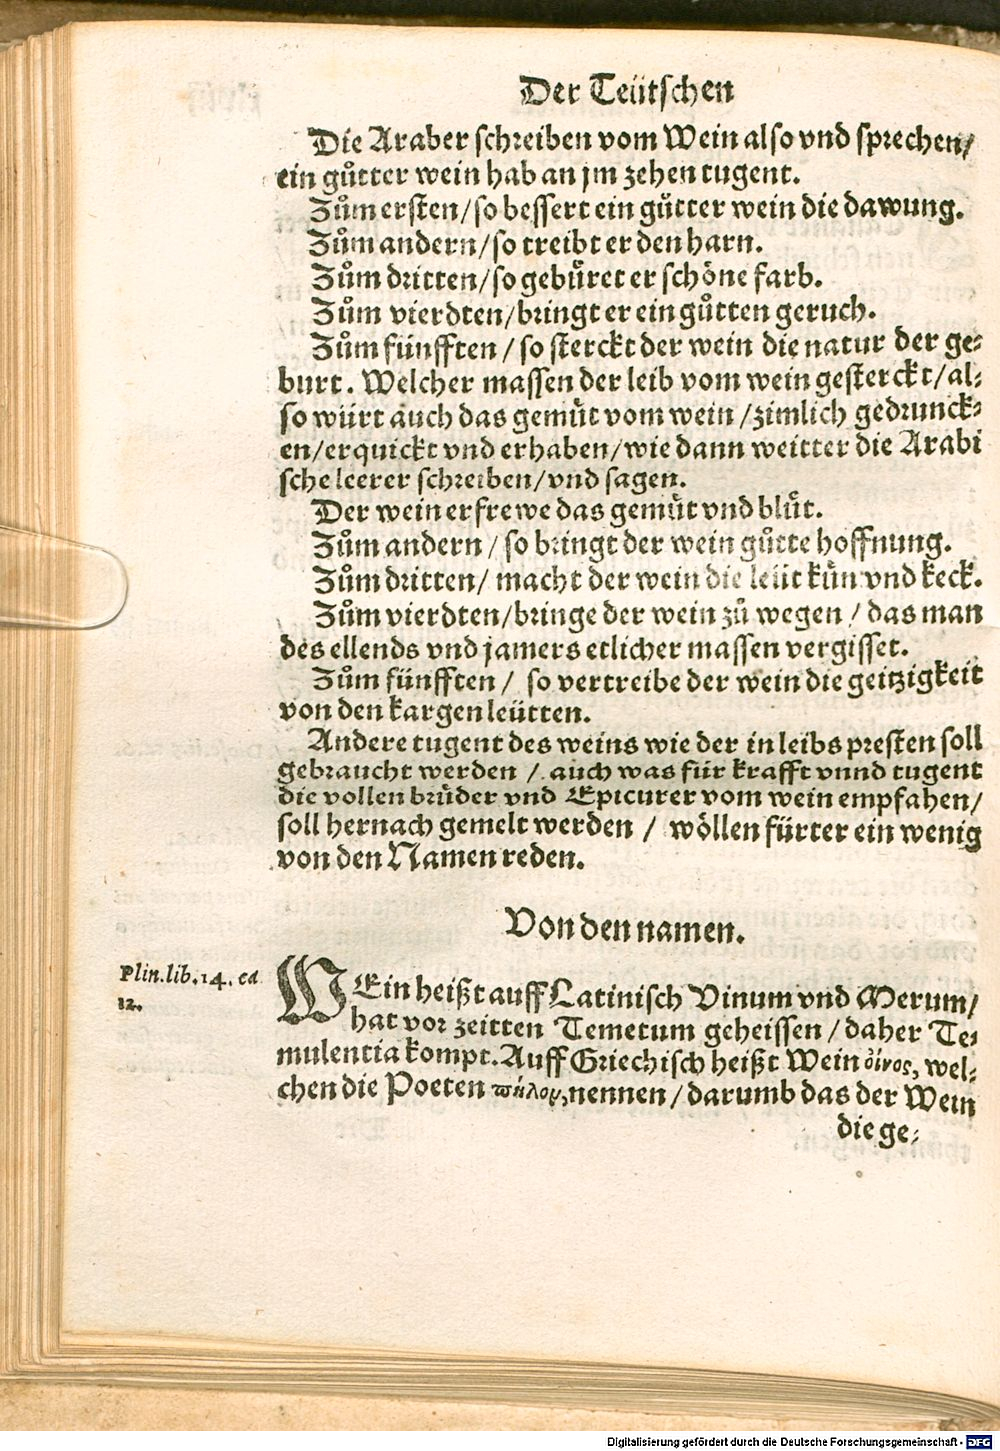 Der Teütschen
Die Araber schreiben vom Wein also vnd sprechen/
ein gůtter wein hab an jm zehen tugent.
Zům ersten/so bessert ein gůtter wein die dawung.
Zům andern/so treibt er den harn.
Zům dritten/so gebüret er schöne farb.
Zům vierdten/bringt er ein gůtten geruch.
Zům fünfften/so sterckt der wein die natur der ge⸗
burt. Welcher massen der leib vom wein gesterckt/al⸗
so würt auch das gemüt vom wein/zimlich gedrunck⸗
en/erquickt vnd erhaben/wie dann weitter die Arabi
sche leerer schreiben/vnd sagen.
Der wein erfrewe das gemüt vnd blůt.
Zům andern/so bringt der wein gůtte hoffnung.
Zům dritten/macht der wein die leüt kün vnd keck.
Zům vierdten/bringe der wein zů wegen/das man
des ellends vnd jamers etlicher massen vergisset.
Zům fünfften/ so vertreibe der wein die geitzigkeit
von den kargen leütten.
Andere tugent des weins wie der in leibs presten soll
gebraucht werden/auch was für krafft vnnd tugent
die vollen brüder vnd Epicurer vom wein empfahen/
soll hernach gemelt werden/ wöllen fürter ein wenig
von den Namen reden.
Von den namen.
Plin.lib.14.ca
12.
WEin heißt auff Latinisch Vinum vnd Merum/
hat vor zeitten Temetum geheissen/daher Te⸗
mulentia kompt. Auff Griechisch heißt Wein οἶνος, wel⸗
chen die Poeten nennen/darumb das der Wein
die ge⸗
Digitalisierung gefördert durch die Deutsche Forschungsgemeinschaft - DFG